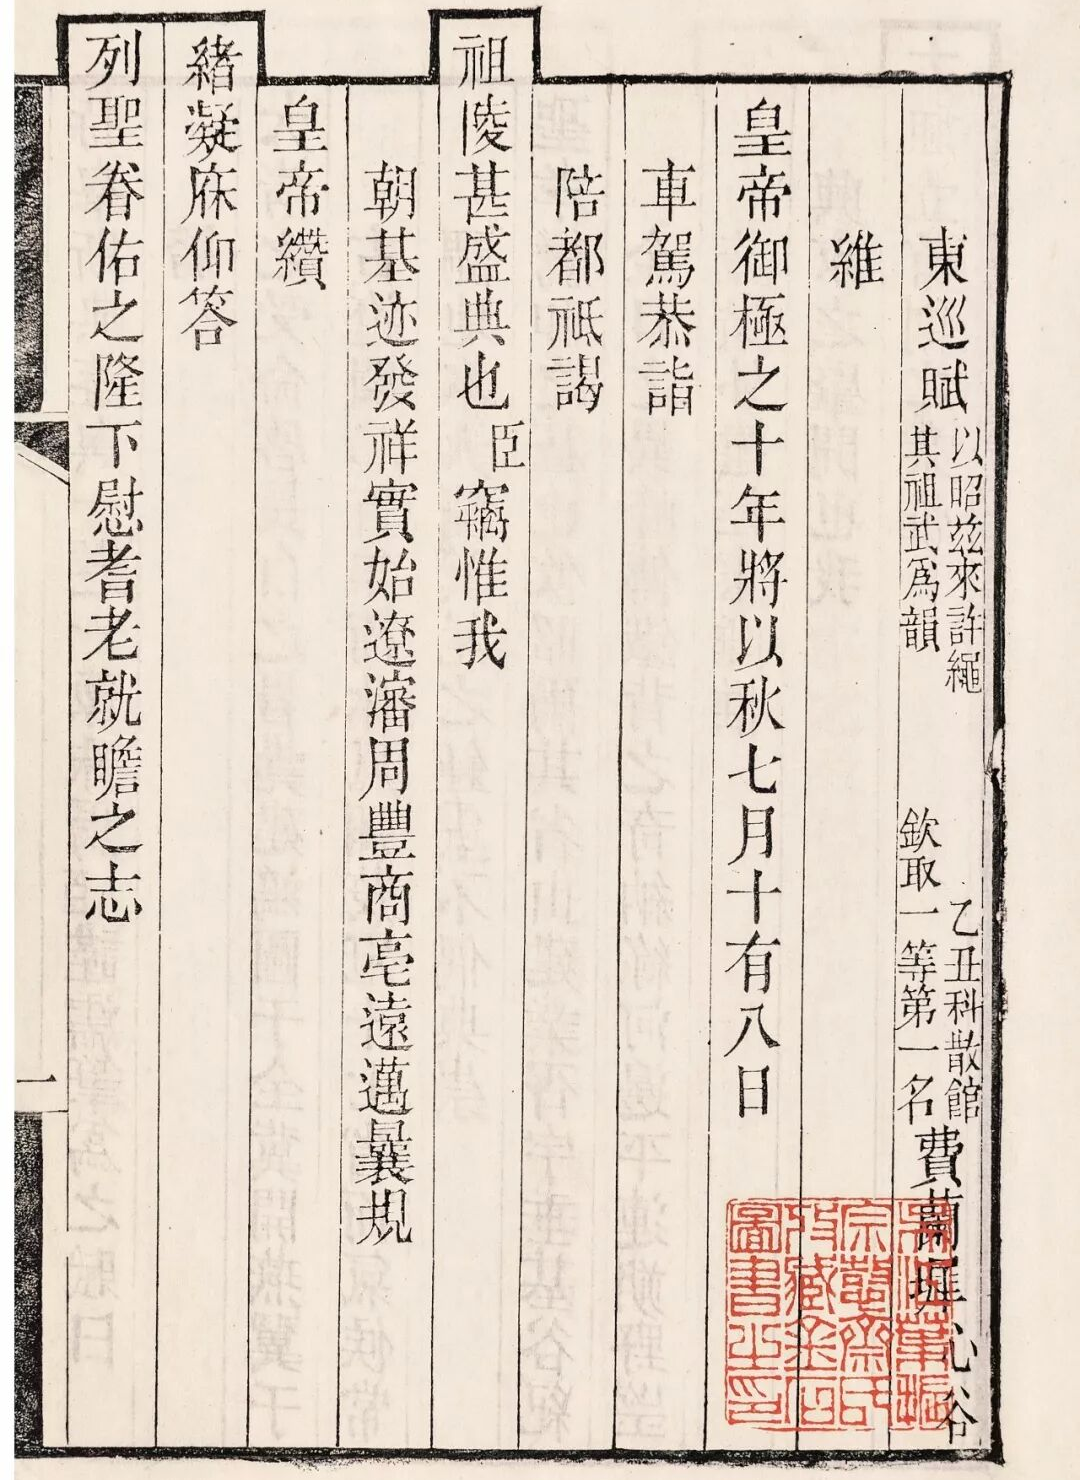 東巡賦以昭兹來許繩
其祖武爲韻
乙丑科散館
欽取一等第一名
費蘭墀心谷
維
皇帝御極之十年將以秋七月十有八日
車駕恭詣
陪都祗謁
祖陵甚盛典也臣竊惟我
朝基迹發祥實始遼瀋周豐商亳遠邁曩規
皇帝纘
緒凝庥仰答
列聖眷佑之隆下慰耆老就瞻之志
一
所藏金石
圖書之印